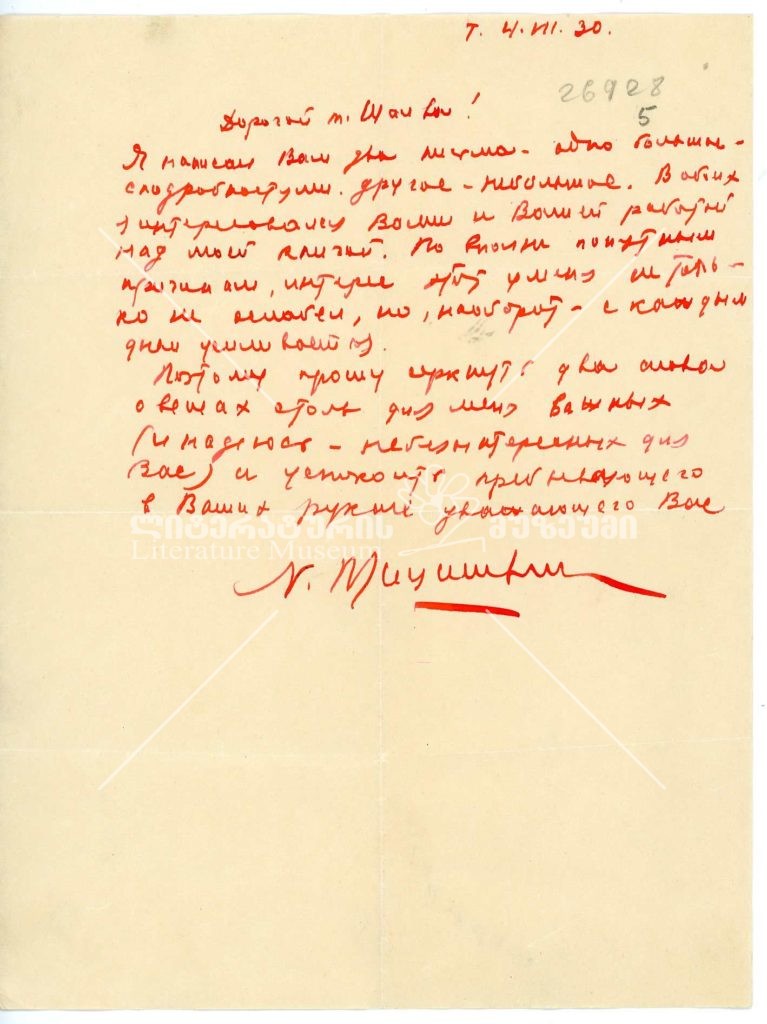 Т. 4.VII.30.
26928
5
Дорогой т. Шалва!
Я написал Вам два письма - одно большое -
с подробностями. другое - небольшое. В обоих
интересовался Вами и Вашей работой
над моей книгой. По вполне понятным
причинам, интерес этот у меня не толь-
ко не ослабел, но, наоборот - с каждым
днем усиливается.
Поэтому прошу черкнуть два слова
о вещах столь для меня важных
(и надеюсь - небезинтересных для
Вас) и успокоить пребывающего
в Ваших руках уважающего Вас
ლიტერატურის მუზეუმი
Literature Museum
Н. Мицишвили